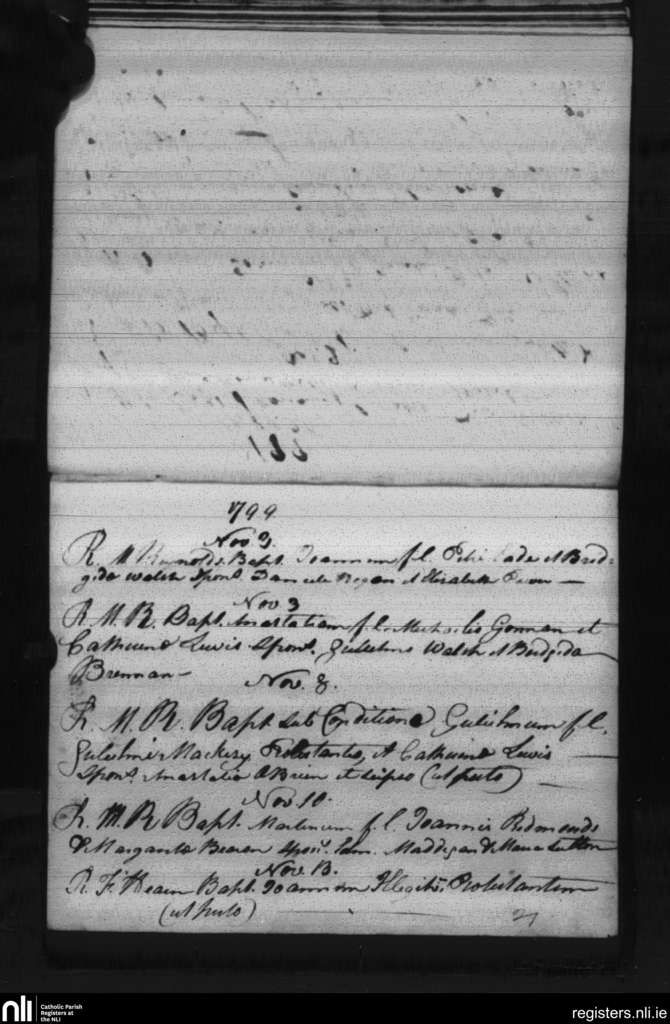 1799
Nov 3
R. M. Reynolds Bapt. Joannem f. l. Petri Cade et Brid-
gida Walsh Spons. Daniele Regan et Elizabeth Power —
Nov 3
R. M. R. Bapt. Anastatiam f. l. Michaelis Gorman et
Catharina Lewis Spons. Gulielmo Walsh et Bridgida
Brennan —
Nov. 8.
R. M. R. Bapt sub Conditione Gulielmum f. l.
Gulielmi Mackesy Protestantis, et Catharina Lewis —
Spons. Anastatia O Brien et seipso (ut puto) —
Nov 10.
R. M. R Bapt. Martinum f. l. Joannis Redmonds
& Margarita Spons. Maddigan & Maria Sutton
Nov. 13.
R. F. Hearn Bapt. Joannem Illegit. Protestantem
(ut puto)
21
nli
Catholic Parish
Registers at
the NLI
registers.nli.ie